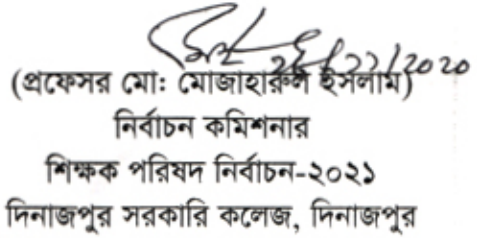 (প্রফেসর মো: মোজাহারুল ইসলাম)
নির্বাচন কমিশনার
শিক্ষক পরিষদ নির্বাচন-২০২১
দিনাজপুর সরকারি কলেজ, দিনাজপুর